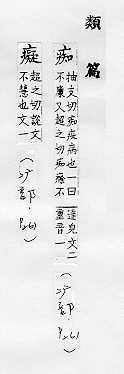 類篇
痴
抽支切痴病也一曰
不廉又超之切痴不
達皃文二
重音一
(疒部, P.261)
癡
超之切說文
不慧也文一
(疒部, P.261)